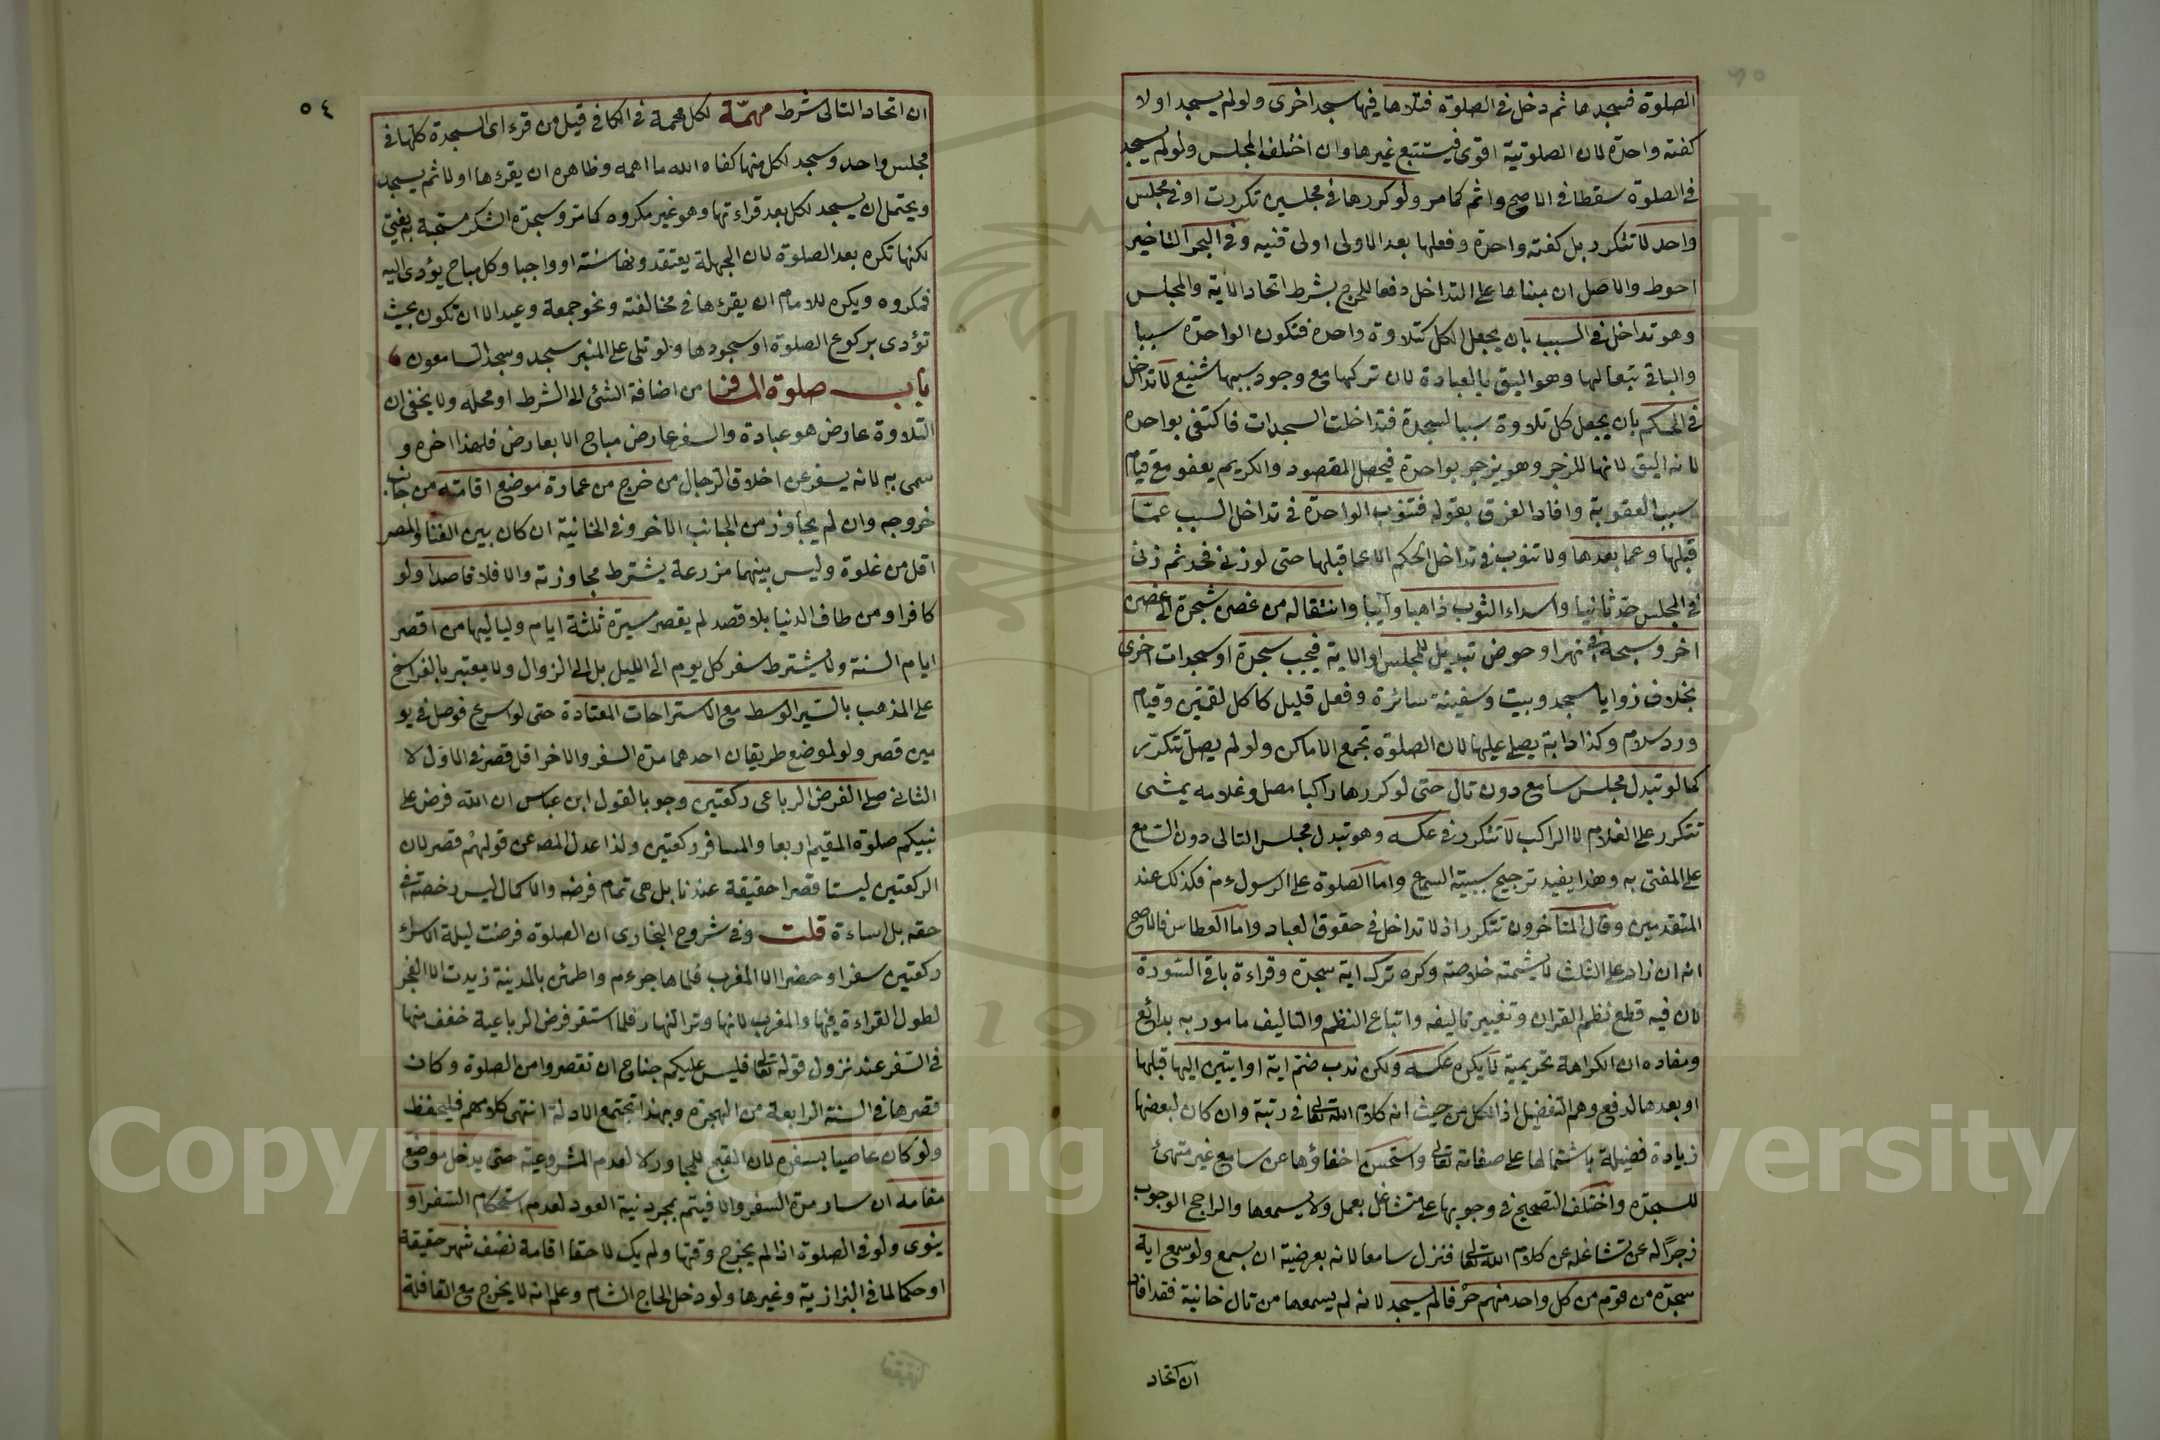 الصلوة فسجدها ثم دخل في الصلوة فتلاها فيها سجد اخرى ولو لم يسجد اولا
كفته واحدة لان الصلوتية اقوى فيستتبع غيرها وان اختلف المجلس ولو لم يسجد
في الصلوة سقطا في الاصح واثم كما مر ولو كررها في مجلسين تكررت او في مجلس
واحد لا تتكرر بل كفته واحدة وفعلها بعد الاولى اولى قنيه وفي البحر التاخير
احوط والاصل ان مبناها على التداخل دفعا للحرج بشرط اتحاد الاية والمجلس
وهو تداخل في السبب بان يجعل الكل كتلاوة واحدة فتكون الواحدة سببا
والباقي تبعا لها وهو اليق بالعبادة لان تركها مع وجود سببها شنيع لا تداخل
في الحكم بان يجعل كل تلاوة سببا لسجدة فتداخلت السجدات فاكتفى بواحدة
لانه اليق لانها للزجر وهو ينزجر بواحدة فيحصل المقصود والكريم يعفو مع قيام
سبب العقوبة وافاد الفرق بقوله فتنوب الواحدة في تداخل السبب عما
قبلها وعما بعدها ولا تنوب في تداخل الحكم الا عما قبلها حتى لو زنى فحد ثم زنى
في المجلس حد ثانيا واسداء الثوب ذاهبا وآيبا وانتقاله من غصن شجرة الى غصن
اخر وسبحه في نهر او حوض تبديل للمجلس او الاية فيجب سجدة او سجدات اخرى
بخلاف زوايا مسجد وبيت وسفينة سائرة وفعل قليل كاكل لقمتين وقيام
ورد سلام وكذا دابة يصلي عليها لان الصلوة تجمع الاماكن ولو لم يصل تتكرر
كما لو تبدل مجلس سامع دون تال حتى لو كررها راكبا مصل وغلامه يمشى
تتكرر على الغلام لا الراكب لا تتكرر في عكسه وهو تبدل مجلس التالى دون السامع
على المفتى به وهذا يفيد ترجيح سببية السماع واما الصلوة على الرسول ءم فكذلك عند
المتقدمين وقال المتأخرون تتكرر اذ لا تداخل في حقوق العباد واما العطاس فالاصح
انه ان زاد على الثلث لا يشمته خلاصة وكره ترك اية سجدة وقراءة باقي السورة
لان فيه قطع نظم القران وتغيير تاليفه واتباع النظم والتاليف مامور به بدائع
ومفاده ان الكراهة تحريمية لا يكره عكسه ولكن ندب ضم اية او ايتين اليها قبلها
او بعدها لدفع وهم التفضيل اذ الكل من حيث انه كلام الله تعالى في رتبة وان كان لبعضها
زيادة فضيلة باشتمالها على صفاته تعالى واستحسن اخفاؤها عن سامع غير متهيئ
للسجدة واختلف التصحيح في وجوبها على متشاغل بعمل ولا يسمعها والراجح الوجوب
زجرا له عن تشاغله عن كلام الله تعالى فنزل سامعا لانه بعرضية ان يسمع ولو سمع اية
سجدة من قوم من كل واحد منهم حرفا لم يسجد لانه لم يسمعها من تال خانية فقد افاد
ان اتحاد
٥٤
ان اتحاد التالى شرط مهمّة لكل مهمة في الكافي قيل من قرء اى السجدة كلها في
مجلس واحد وسجد لكل منها كفاه الله ما اهمه وظاهره ان يقرءها اولا ثم يسجد
ويحتمل ان يسجد لكل بعد قراءتها وهو غير مكروه كما مر وسجدة الشكر مستحبة به يفتى
لكنها تكره بعد الصلوة لان الجهلة يعتقدونها سنة او واجبا وكل مباح يؤدى اليه
فمكروه ويكره للامام ان يقرءها في مخالفته ونحو جمعة وعيد الا ان تكون بحيث
تؤدى بركوع الصلوة او سجودها ولو تلى على المنبر سجد وسجد السامعون
باب صلوة المسافر من اضافة الشئ الى الشرط او محله ولا يخفى ان
التلاوة عارض هو عبادة والسفر عارض مباح الا بعارض فلهذا اخره و
سمى به لانه يسفر عن اخلاق الرجال من خرج من عمارة موضع اقامته من جانب
خروجه وان لم يجاوز من الجانب الاخر وفي الخانية ان كان بين الفنا والمصر
اقل من غلوة وليس بينهما مزرعة يشترط مجاوزته والا فلا قاصدا ولو
كافرا ومن طاف الدنيا بلا قصد لم يقصر مسيرة ثلثة ايام ولياليها من اقصر
ايام السنة ولا يشترط سفر كل يوم الى الليل بل الى الزوال ولا معتبر بالفراسخ
على المذهب بالسير الوسط مع الاستراحات المعتادة حتى لو اسرع فوصل في يو
مين قصر ولو لموضع طريقان احدهما مدة السفر والاخر اقل قصر في الاول لا
الثانى صلى الفرض الرباعى ركعتين وجوبا لقول ابن عباس ان الله فرض على
نبيكم صلوة المقيم اربعا والمسافر ركعتين ولذا عدل المصه عن قولهم قصر لان
الركعتين ليستا قصرا حقيقة عندنا بل هى تمام فرضه والاكمال ليس رخصة في
حقه بل اساءة قلت وفي شروح البخارى ان الصلوة فرضت ليلة الاسراء
ركعتين سفرا وحضرا الا المغرب فلما هاجر ءم واطمئن بالمدينة زيدت الا الفجر
لطول القراءة فيها والمغرب لانها وتر النهار فلما استقر فرض الرباعية خفف منها
في السفر عند نزول قوله تعالى فليس عليكم جناح ان تقصروا من الصلوة وكان
قصرها في السنة الرابعة من الهجرة وبهذا تجتمع الادلة انتهى كلامهم فليحفظ
ولو كان عاصيا بسفره لان القبح المجاور لا يعدم المشروعية حتى يدخل موضع
مقامه ان سار مدة السفر والا فيتم بمجرد نية العود لعدم استحكام السفر او
ينوى ولو في الصلوة اذا لم يخرج وقتها ولم يك لاحقا اقامة نصف شهر حقيقة
او حكما لما في البزازية وغيرها ولو دخل الحاج الشام وعلم انه لا يخرج مع القافلة
Copyright © King Saud University